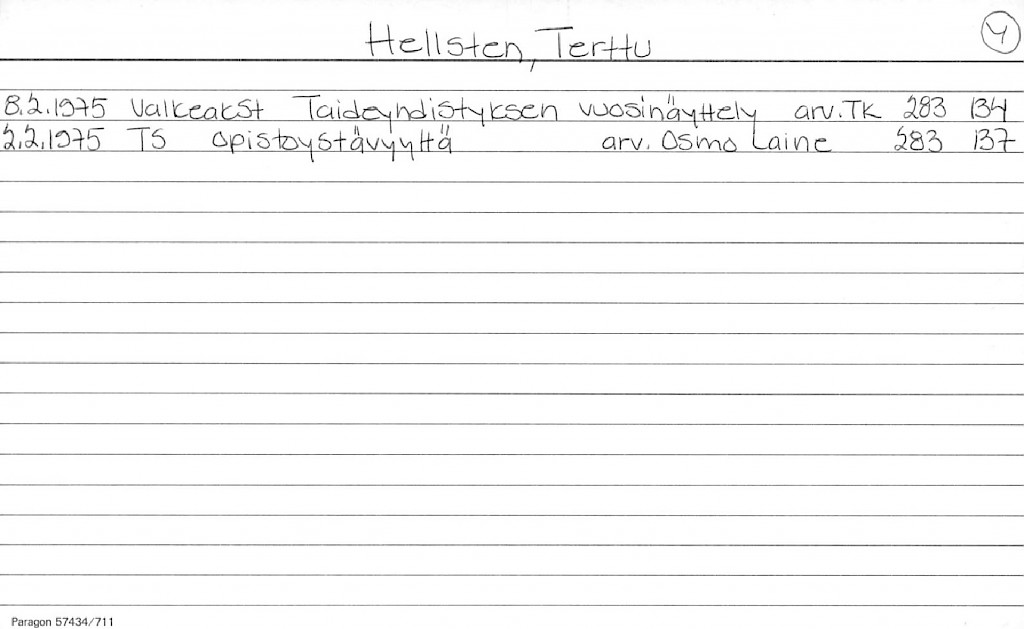 Hellsten, Terttu Y
8.2.1975 ValkeakSt Taideyhdistyksen vuosinäyttely arv. TK 283 134
2.2.1975 TS Opistoystävyyttä arv. Osmo Laine 283 137
Paragon 57434/711